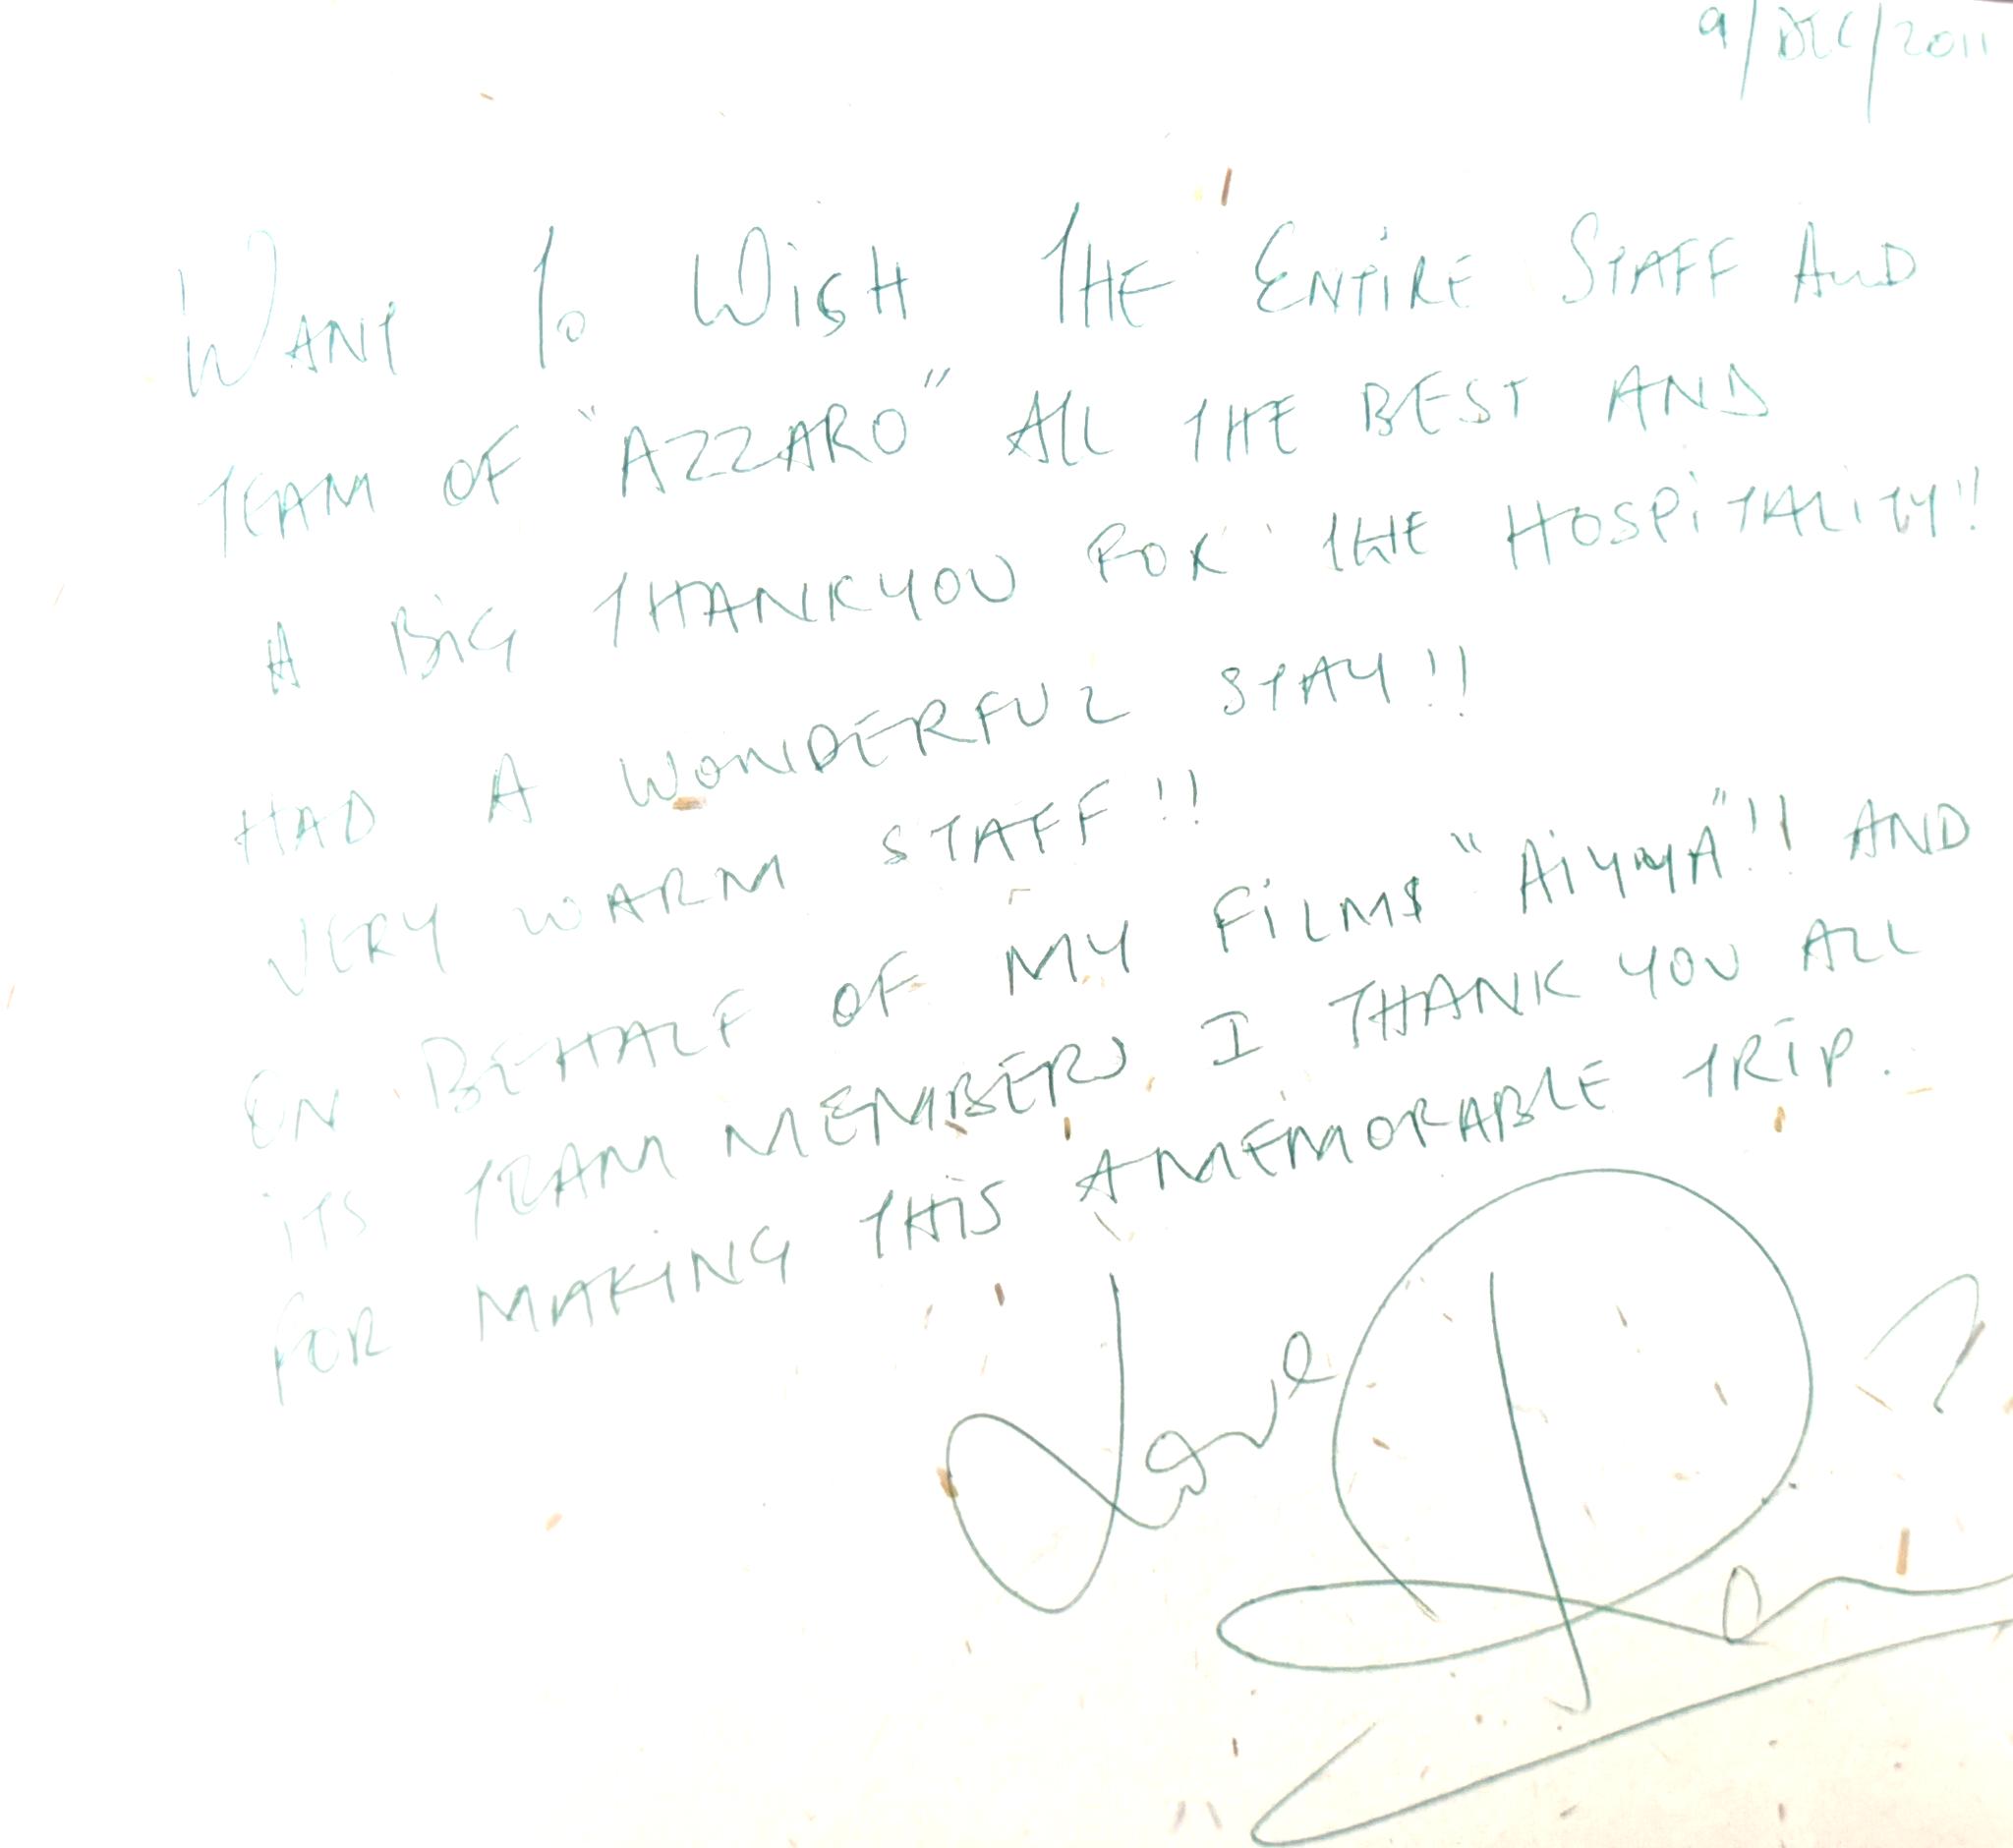 9/DEC/2011
WANT TO WISH THE ENTIRE STAFF AND
TEAM OF "AZZARO" ALL THE BEST AND
A BIG THANKYOU FOR THE HOSPITALITY!!
HAD A WONDERFUL STAY!!
VERY WARM STAFF!!
ON BEHALF OF MY FILMS "AIYYA"!! AND
ITS TEAM MEMBERS I THANK YOU ALL
FOR MAKING THIS A MEMORABLE TRIP.
Love